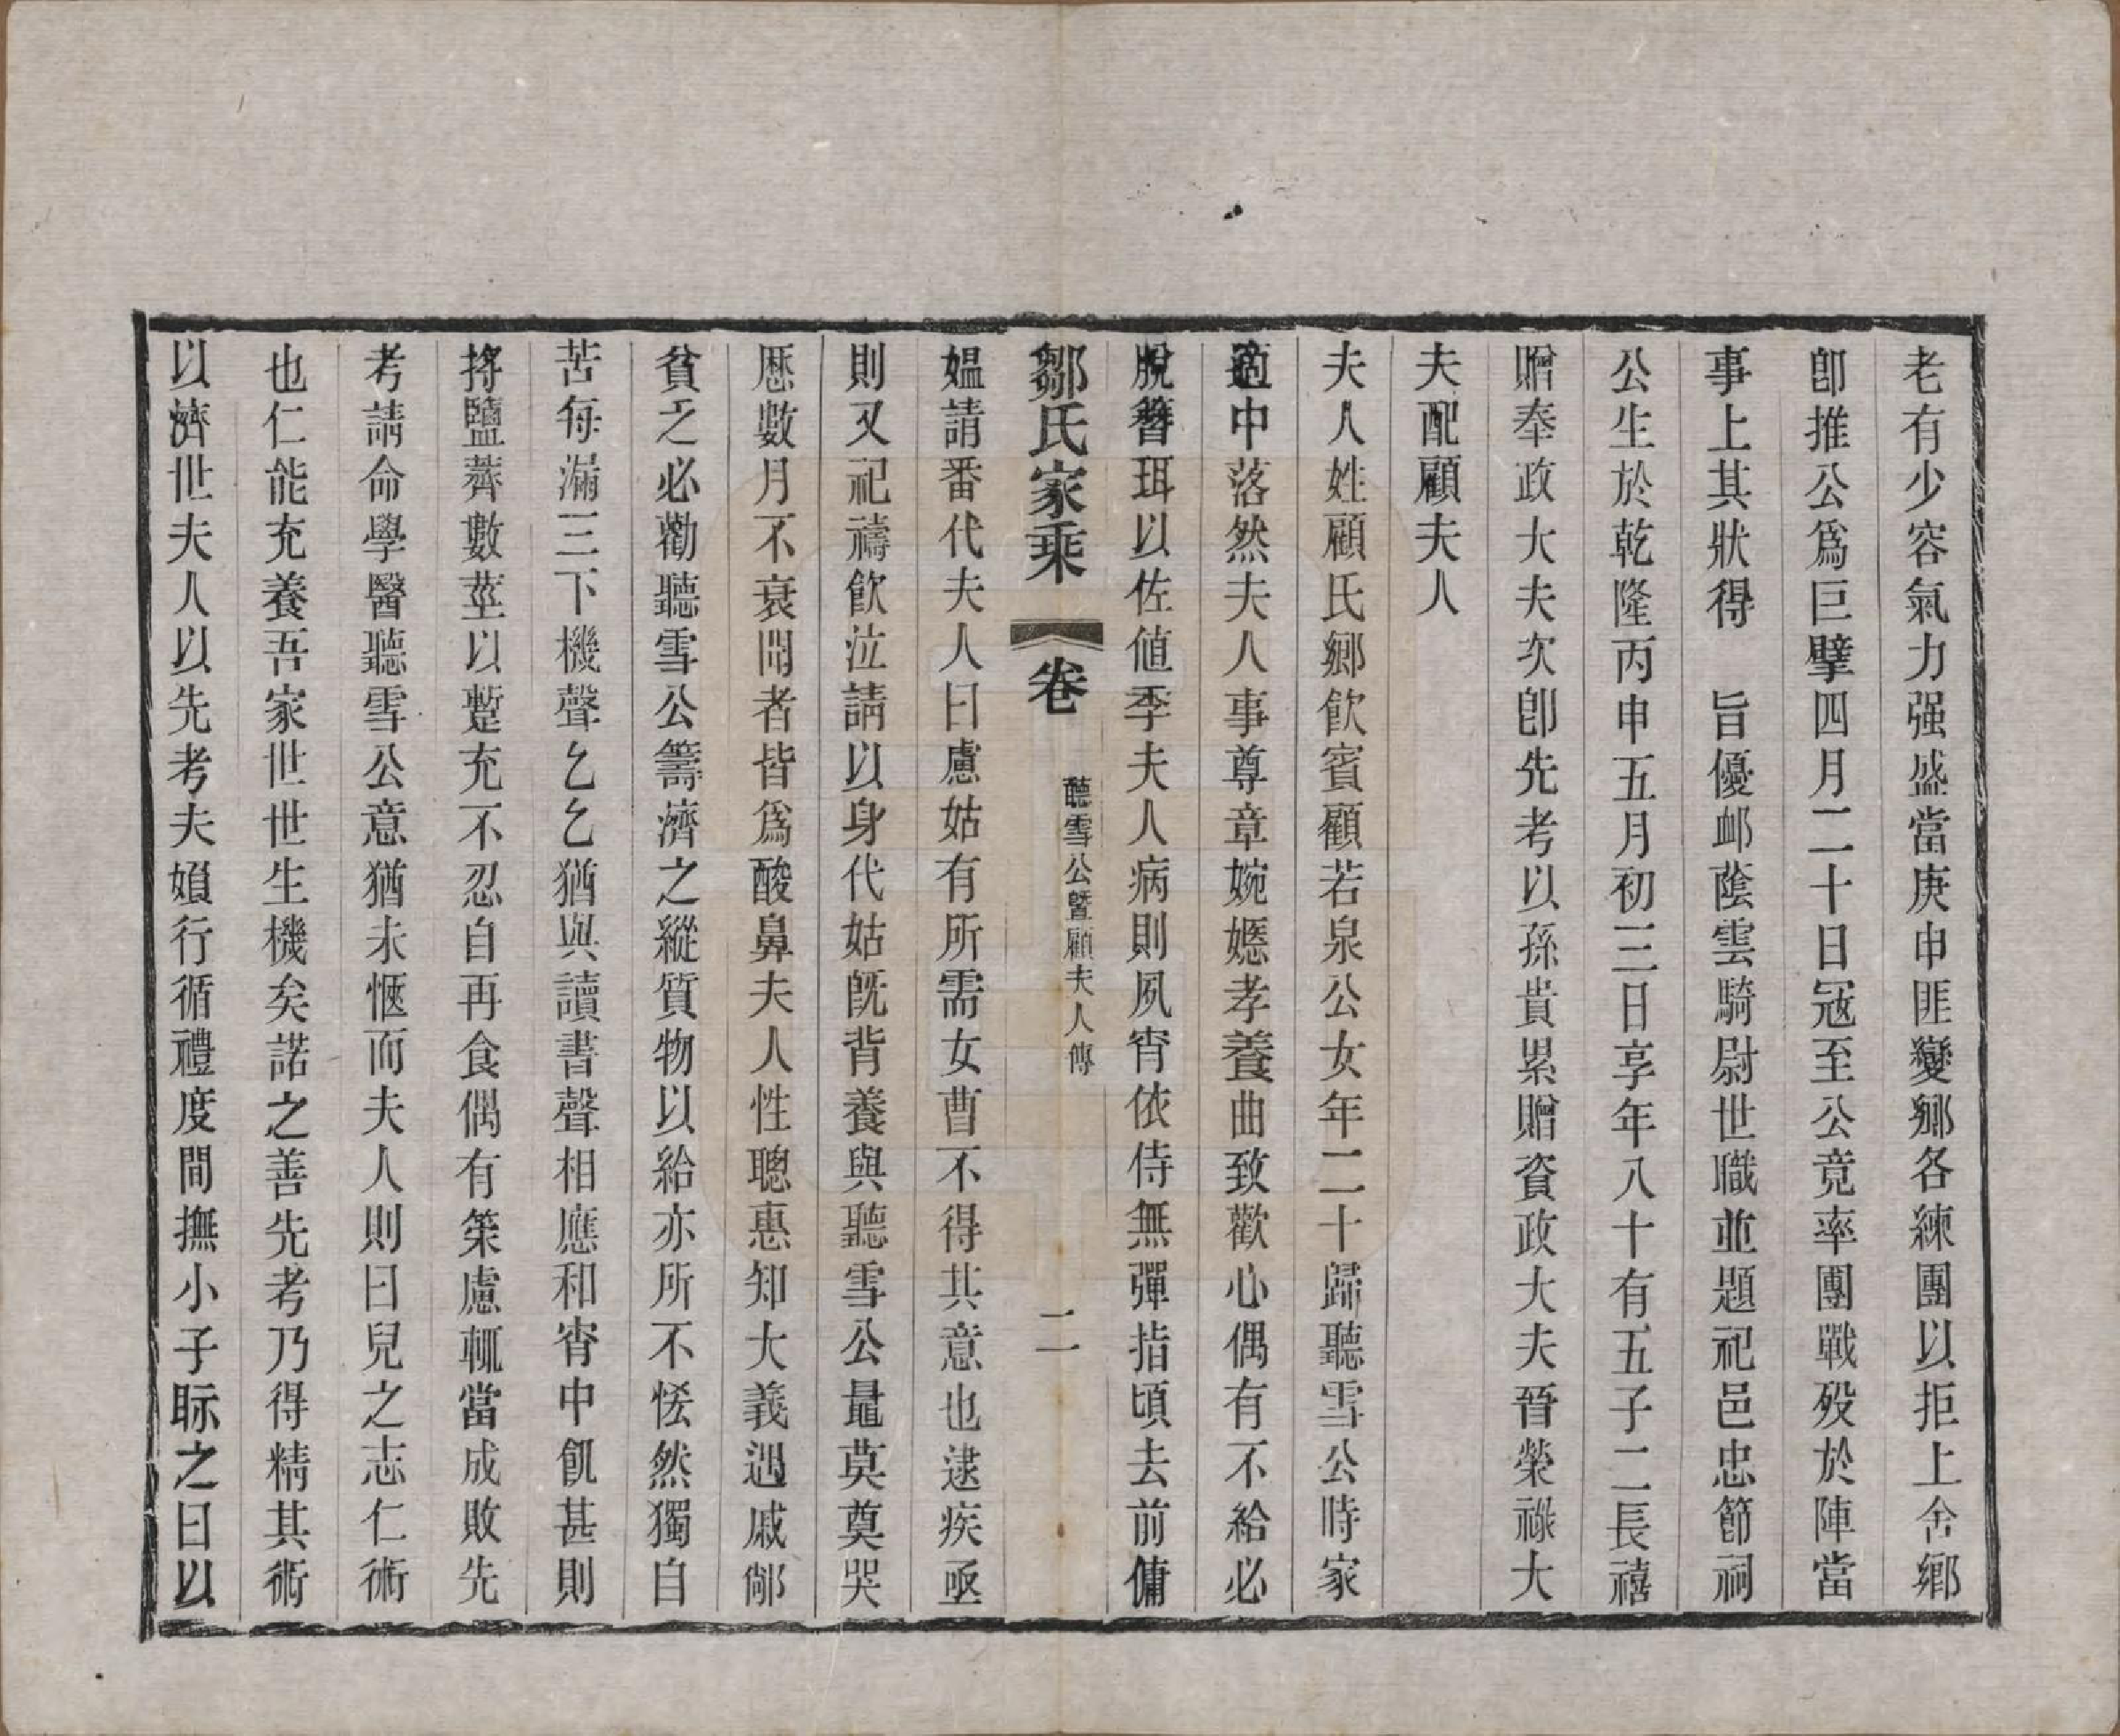 老有少容氣力强盛當庚申匪變鄉各練團以拒上舍鄉
卽推公爲巨擘四月二十日冦至公竟率團戰殁於陣當
事上其狀得　旨優卹蔭雲騎尉世職並題祀邑忠節祠
公生於乾隆丙申五月初三日享年八十有五子二長禧
贈奉政大夫次卽先考以孫貴累贈資政大夫晉榮祿大
夫配顧夫人
夫人姓顧氏鄉飮賓顧若泉公女年二十歸聽雪公時家
適中落然夫人事尊章婉嫕孝養曲致歡心偶有不給必
脫簪珥以佐値季夫人病則夙宵依侍無彈指頃去前傭
鄒氏家乘　卷　聽雪公曁顧夫人傳　二
媼請番代夫人曰慮姑有所需女曹不得其意也逮疾亟
則又祀禱飮泣請以身代姑旣背養與聽雪公晨莫奠哭
歷數月不衰聞者皆爲酸鼻夫人性聰惠知大義遇戚鄰
貧乏必勸聽雪公籌濟之縱質物以給亦所不恡然獨自
苦每漏三下機聲乞乞猶與讀書聲相應和宵中飢甚則
捋鹽薺數莖以蹔充不忍自再食偶有筞慮輒當成敗先
考請命學醫聽雪公意猶未愜而夫人則曰兒之志仁術
也仁能充養吾家世世生機矣諾之善先考乃得精其術
以濟世夫人以先考夫媍行循禮度間撫小子眎之曰以